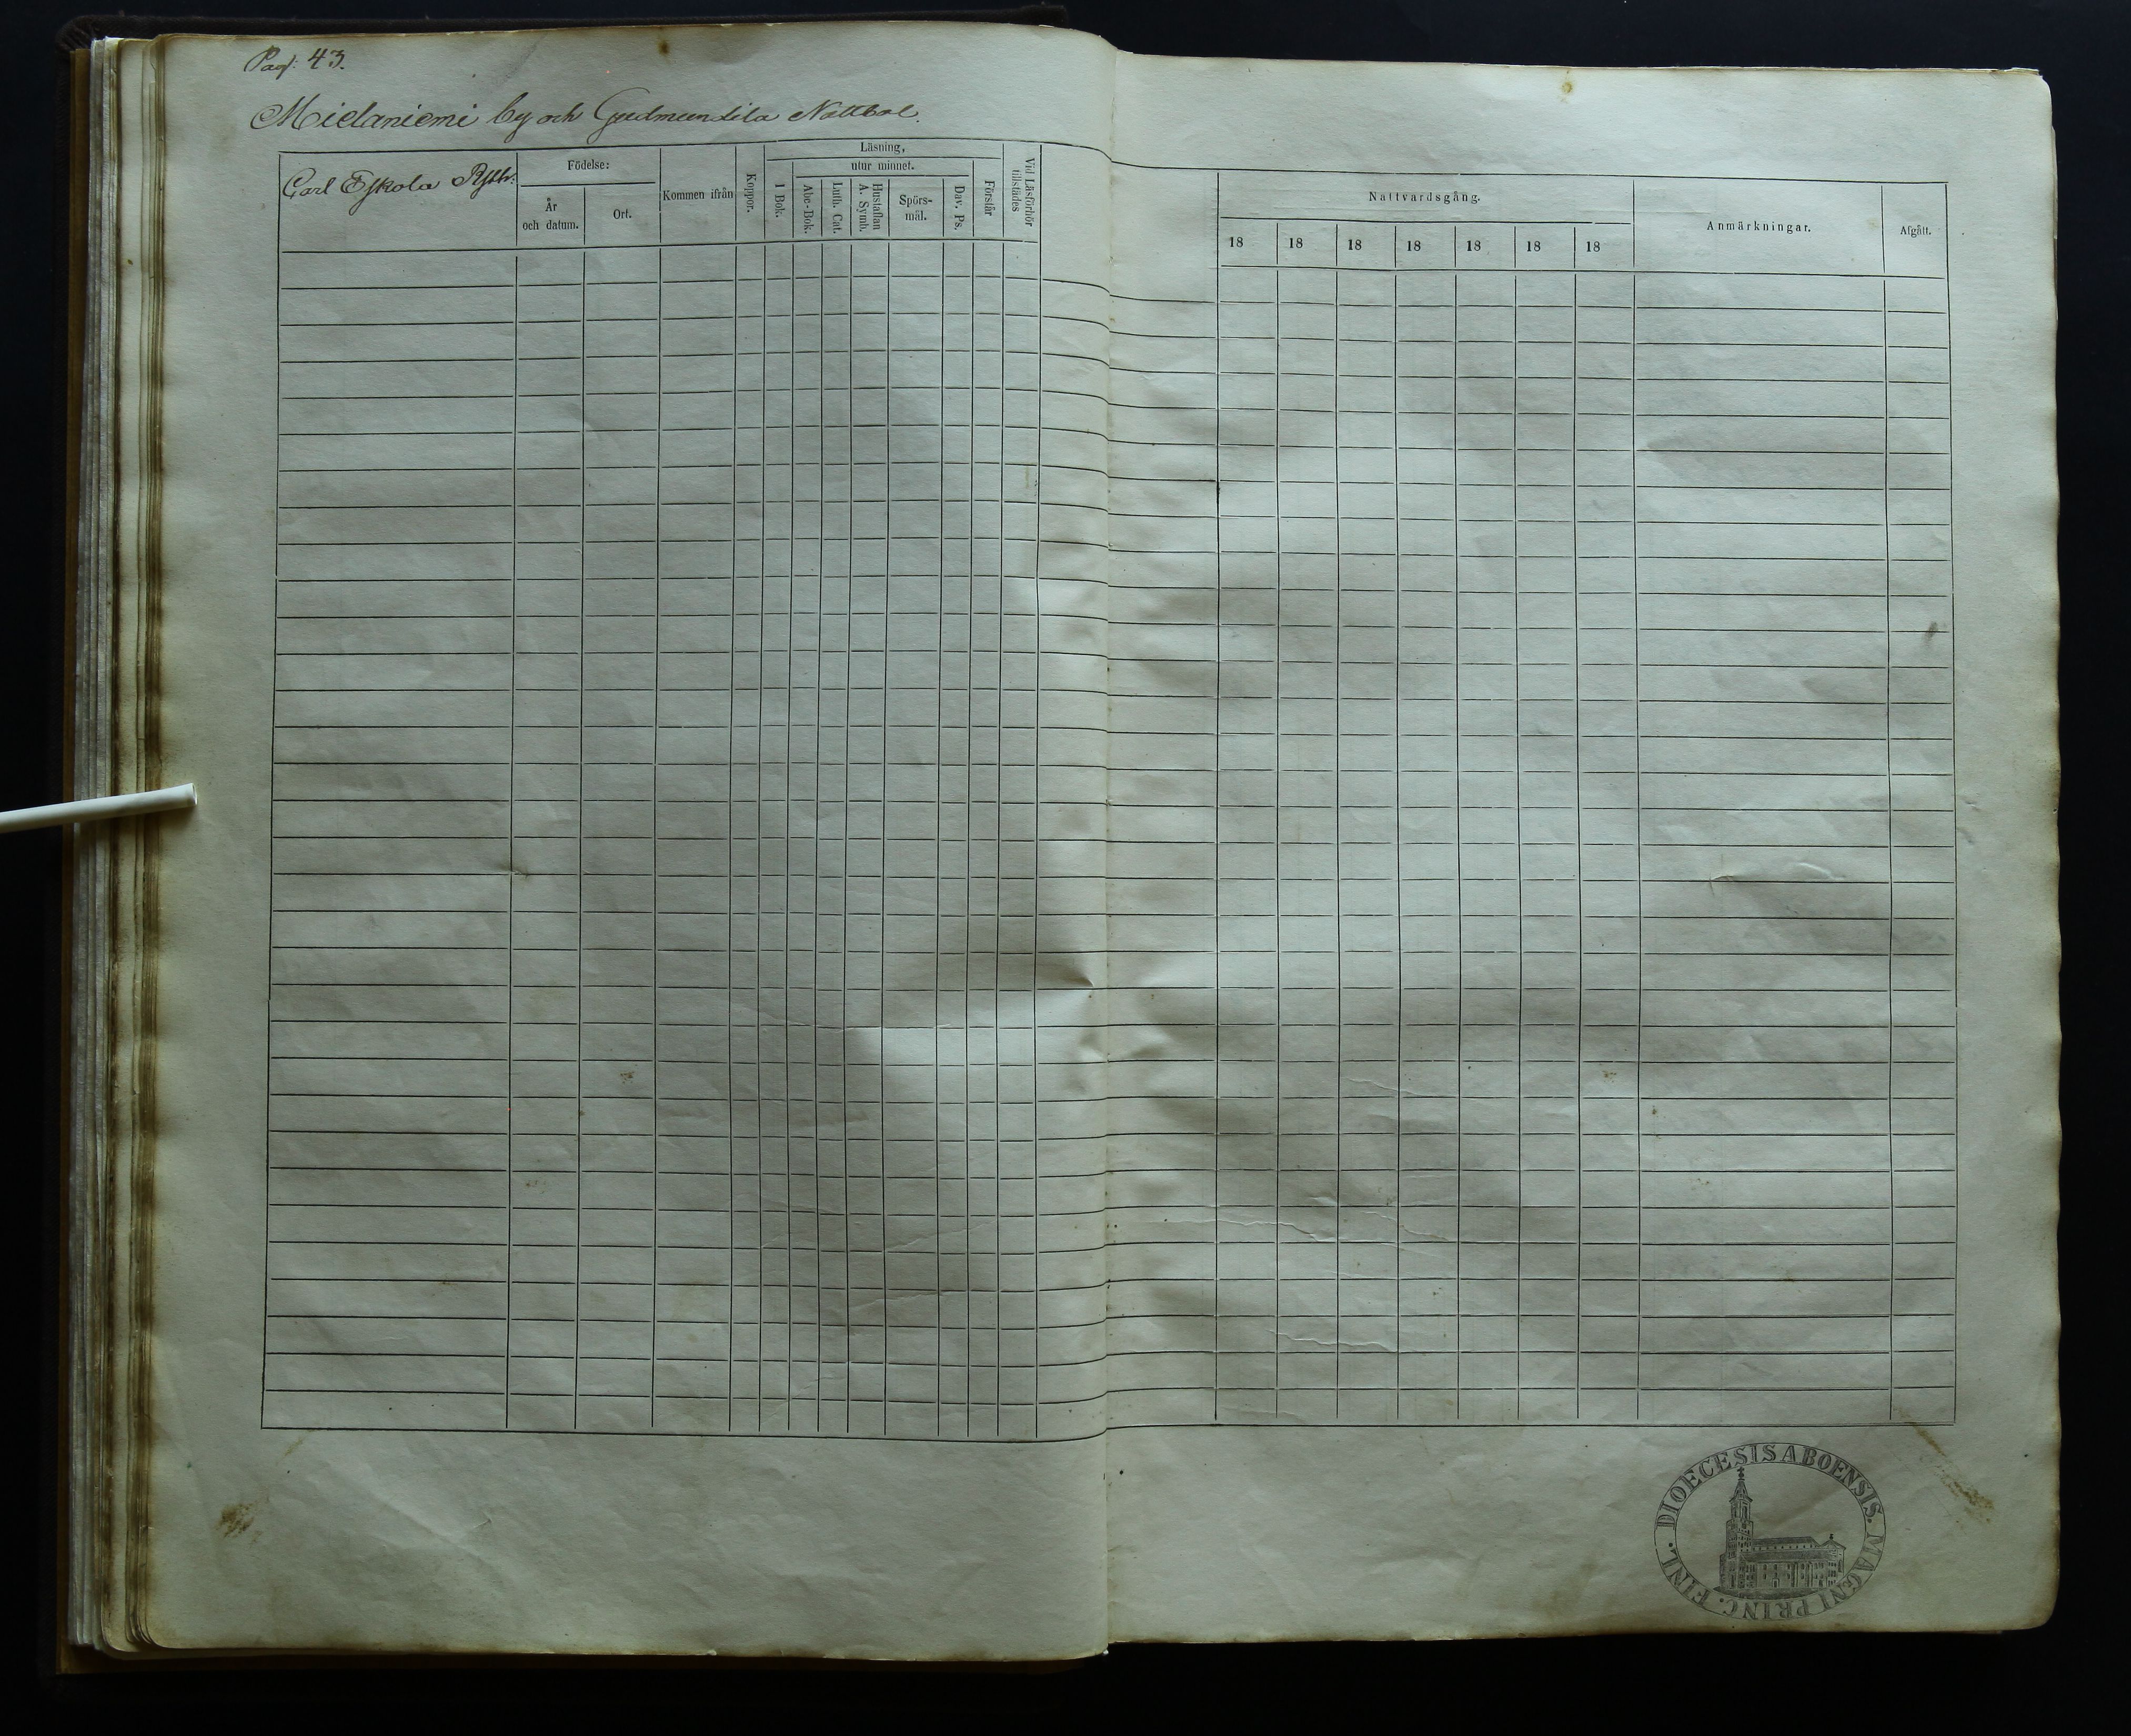 Pag: 43.
Mielaniemi by och Gudmundila Nattbol.
Carl Eskola Rsth:
Födelse:
År
och datum.
Ort.
Kommen ifrån
Koppor.
Läsning,
utur minnet.
I Bok.
Abc-Bok.
Luth. Cat.
Hustaflan
A. Symb.
Spörs-
mål.
Dav. Ps.
Förstår
Vid Läsförhör
tillstädes
Nattvardsgång.
18 18 18 18 18 18 18
Anmärkningar.
Afgått.
DIOECESIS ABOENSIS. MAGNI PRINC. FINL.